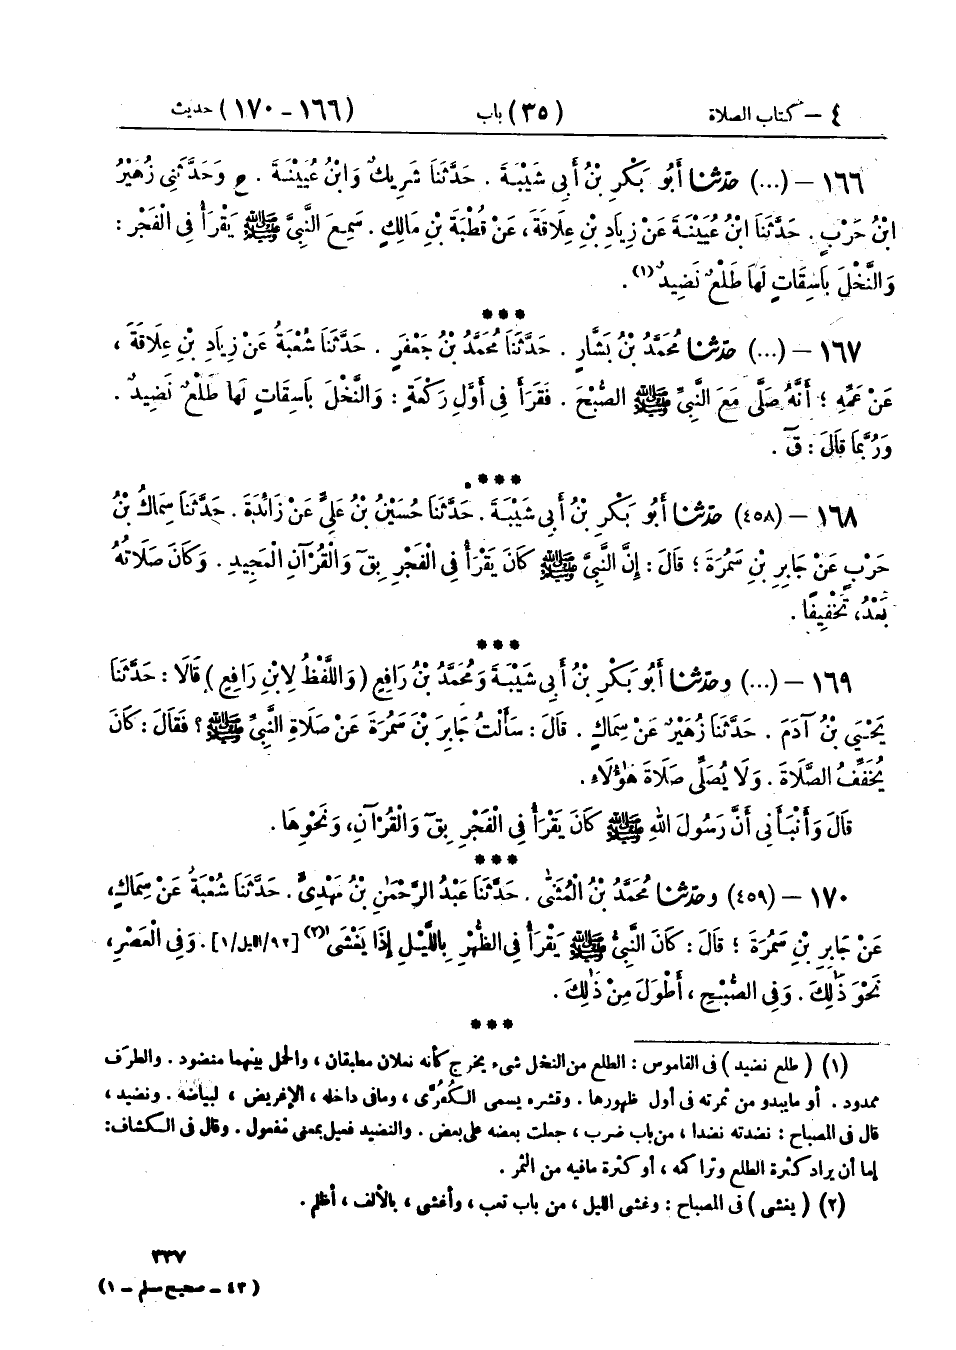 ٤ - كتاب الصلاة (٣٥) باب (١٦٦ - ١٧٠) حديث
١٦٦ - (...) حَدَّثَنَا أَبُو بَكْرِ بْنُ أَبِي شَيْبَةَ . حَدَّثَنَا شَرِيكٌ وَابْنُ عُيَيْنَةَ . ح وَحَدَّثَنِي زُهَيْرُ
ابْنُ حَرْبٍ . حَدَّثَنَا ابْنُ عُيَيْنَةَ عَنْ زِيَادِ بْنِ عِلَاقَةَ ، عَنْ قُطْبَةَ بْنِ مَالِكٍ . سَمِعَ النَّبِيَّ ﷺ يَقْرَأُ فِي الْفَجْرِ :
وَالنَّخْلَ بَاسِقَاتٍ لَهَا طَلْعٌ نَضِيدٌ (١) .
***
١٦٧ - (...) حَدَّثَنَا مُحَمَّدُ بْنُ بَشَّارٍ . حَدَّثَنَا مُحَمَّدُ بْنُ جَعْفَرٍ . حَدَّثَنَا شُعْبَةُ عَنْ زِيَادِ بْنِ عِلَاقَةَ ،
عَنْ عَمِّهِ ؛ أَنَّهُ صَلَّى مَعَ النَّبِيِّ ﷺ الصُّبْحَ . فَقَرَأَ فِي أَوَّلِ رَكْعَةٍ : وَالنَّخْلَ بَاسِقَاتٍ لَهَا طَلْعٌ نَضِيدٌ .
وَرُبَّمَا قَالَ : قٓ .
***
١٦٨ - (٤٥٨) حَدَّثَنَا أَبُو بَكْرِ بْنُ أَبِي شَيْبَةَ . حَدَّثَنَا حُسَيْنُ بْنُ عَلِيٍّ عَنْ زَائِدَةَ . حَدَّثَنَا سِمَاكُ بْنُ
حَرْبٍ عَنْ جَابِرِ بْنِ سَمُرَةَ ؛ قَالَ : إِنَّ النَّبِيَّ ﷺ كَانَ يَقْرَأُ فِي الْفَجْرِ بِقٓ وَالْقُرْآنِ الْمَجِيدِ . وَكَانَ صَلَاتُهُ
بَعْدُ ، تَخْفِيفًا .
***
١٦٩ - (...) وحَدَّثَنَا أَبُو بَكْرِ بْنُ أَبِي شَيْبَةَ وَمُحَمَّدُ بْنُ رَافِعٍ ( وَاللَّفْظُ لِابْنِ رَافِعٍ ) قَالَا : حَدَّثَنَا
يَحْيَى بْنُ آدَمَ . حَدَّثَنَا زُهَيْرٌ عَنْ سِمَاكٍ . قَالَ : سَأَلْتُ جَابِرَ بْنَ سَمُرَةَ عَنْ صَلَاةِ النَّبِيِّ ﷺ ؟ فَقَالَ : كَانَ
يُخَفِّفُ الصَّلَاةَ . وَلَا يُصَلِّي صَلَاةَ هَؤُلَاءِ .
قَالَ وَأَنْبَأَنِي أَنَّ رَسُولَ اللهِ ﷺ كَانَ يَقْرَأُ فِي الْفَجْرِ بِقٓ وَالْقُرْآنِ ، وَنَحْوِهَا .
***
١٧٠ - (٤٥٩) وحَدَّثَنَا مُحَمَّدُ بْنُ الْمُثَنَّى . حَدَّثَنَا عَبْدُ الرَّحْمَٰنِ بْنُ مَهْدِيٍّ . حَدَّثَنَا شُعْبَةُ عَنْ سِمَاكٍ ،
عَنْ جَابِرِ بْنِ سَمُرَةَ ؛ قَالَ : كَانَ النَّبِيُّ ﷺ يَقْرَأُ فِي الظُّهْرِ بِاللَّيْلِ إِذَا يَغْشَى (٢) [٩٢/الليل/١] . وَفِي الْعَصْرِ ،
نَحْوَ ذَٰلِكَ . وَفِي الصُّبْحِ ، أَطْوَلَ مِنْ ذَٰلِكَ .
***
(١) ( طلع نضيد ) فى القاموس : الطلع من النخل شىء يخرج كأنه نعلان مطبقان ، والحمل بينهما منضود . والطرف
ممدود . أو مايبدو من ثمرته فى أول ظهورها . وقشره يسمى الكُفُرَّى ، ومافى داخله ، الإغريض ، لبياضه . ونضيد ،
قال فى المصباح : نضدته نضدا ، من باب ضرب ، جعلت بعضه على بعض . والنضيد فعيل بمعنى مفعول . وقال فى الكشاف :
إما أن يراد كثرة الطلع وتراكمه ، أو كثرة مافيه من الثمر .
(٢) ( يغشى ) فى المصباح : وغشى الليل ، من باب تعب ، وأغشى ، بالألف ، أظلم .
٣٣٧
( ٤٣ - صحيح مسلم - ١ )